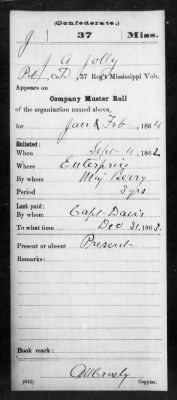 (Confederate.)
J 37 Miss.
J A Jolly
Pvt, Co. D, 37 Reg't Mississippi Vols.
Appears on
Company Muster Roll
of the organization named above,
for Jan & Feb, 1864
Enlisted:
When Sept 4, 1862
Where Enterprise
By whom Maj Berry
Period 3 yrs
Last paid:
By whom Capt Davis
To what time Dec 31, 1863.
Present or absent Present
Remarks:
Book mark:
(642) Copyist.